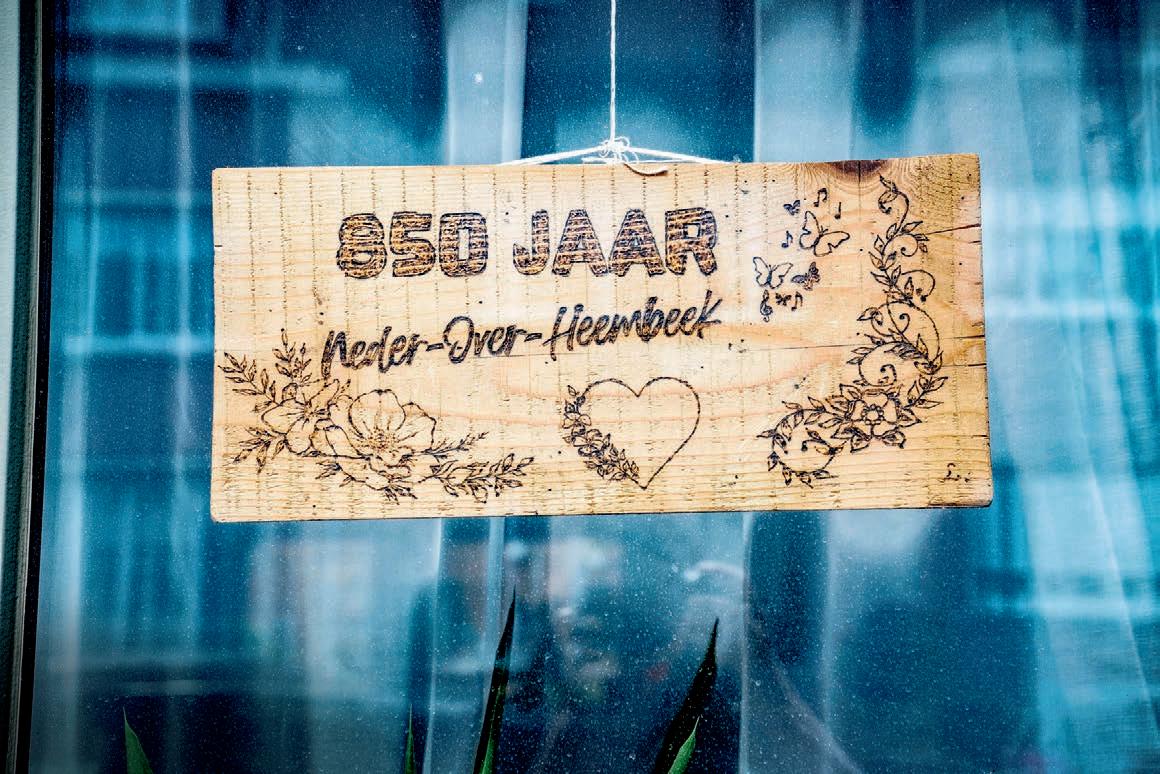 850 JAAR
Neder-Over-Heembeek